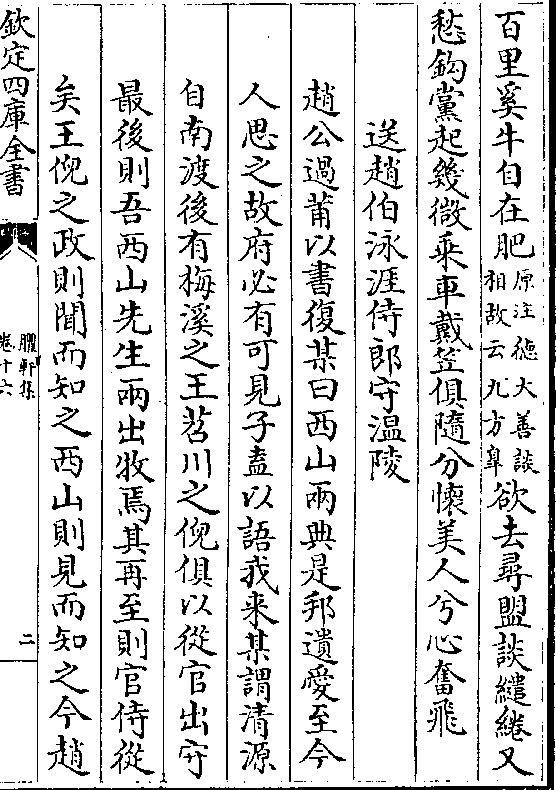 百里奚牛自在肥原注德大善談相故云九方臯欲去尋盟談繾綣又
愁鈎黨起幾微乗車戴笠俱隨分懷美人兮心奮飛
送趙伯泳涯侍郎守温陵
趙公過莆以書復某曰西山兩典是邦遺愛至今
人思之故府必有可見子盍以語我来某謂清源
自南渡後有梅溪之王苕川之倪俱以從官出守
最後則吾西山先生兩出牧焉其再至則官侍從
矣王倪之政則聞而知之西山則見而知之今趙
欽定四庫全書
臞軒集
卷十六
二